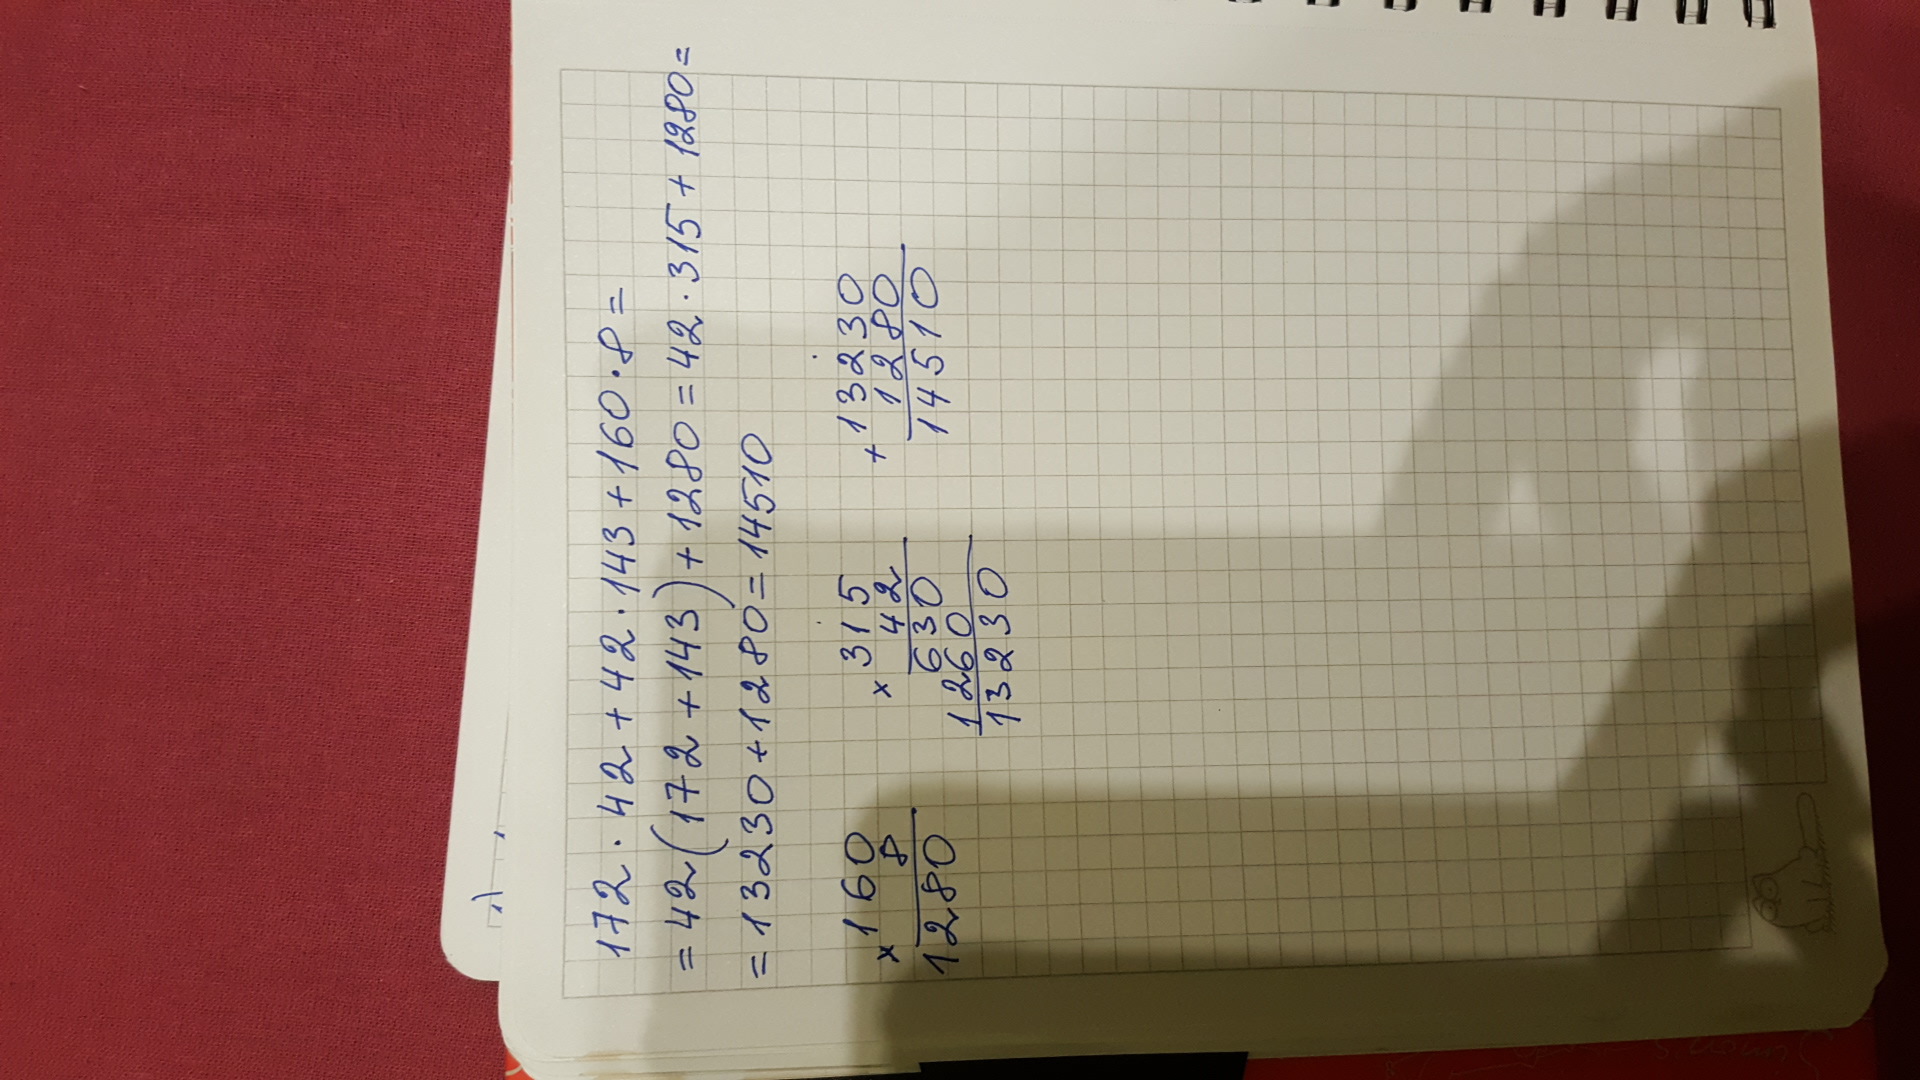 172 · 42 + 42 · 143 + 160 · 8 =
= 42 (172 + 143) + 1280 = 42 · 315 + 1280 =
= 13230 + 1280 = 14510
× 160
8
1280
× 315
42
630
1260
13230
+ 13230
1280
14510